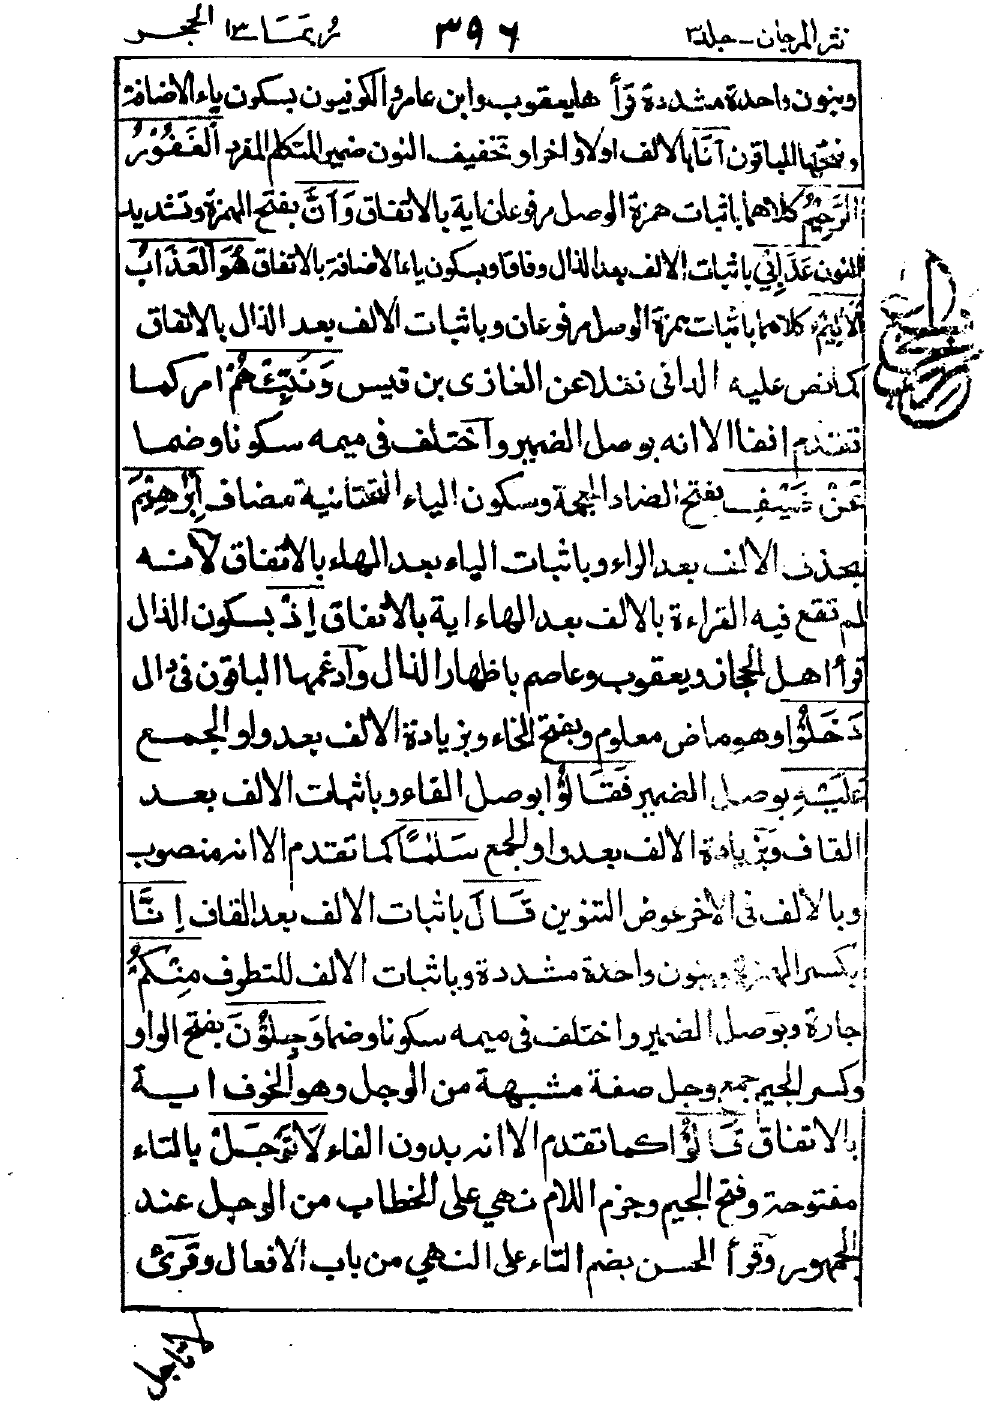 نثر المرجان - جلد ٣ ٣٩٦ ربما ١٣ الحجر
وبنون واحدة مشددة قرأ هايعقوب وابن عامر والكوفيون بسكون ياء الاضافة
وفتحها الباقون اَنَا بالالف اولا واخرا وتخفيف النون ضمير المتكلم المفرد الْغَفُوْرُ
الرَّحِيْمُ كلاهما باثبات همزة الوصل مرفوعان اية بالاتفاق وَاَنَّ بفتح الهمزة وتشديد
النون عَذَابِيْ باثبات الالف بعد الذال وفاقا وبسكون ياء الاضافة بالاتفاق هُوَ الْعَذَابُ
الْاَلِيْمُ كلاهما باثبات همزة الوصل مرفوعان وباثبات الالف بعد الذال بالاتفاق
كما نص عليه الداني نقلا عن الغازي بن قيس وَنَبِّئْهُمْ امر كما
تقدم انفا الا انه بوصل الضمير واختلف في ميمه سكونا وضما
عَنْ ضَيْفِ بفتح الضاد المعجمة وسكون الياء التحتانية مضاف اِبْرٰهِيْمَ
بحذف الالف بعد الراء وباثبات الياء بعد الهاء بالاتفاق لانه
لم تقع فيه القراءة بالالف بعد الهاء اية بالاتفاق اِذْ بسكون الذال
قرأ اهل الحجاز ويعقوب وعاصم باظهار الذال وادغمها الباقون في دال
دَخَلُوْا وهو ماض معلوم وبفتح الخاء وبزيادة الالف بعد واو الجمع
عَلَيْهِ بوصل الضمير فَقَالُوْا بوصل الفاء وباثبات الالف بعد
القاف وبزيادة الالف بعد واو الجمع سَلٰمًا كما تقدم الا انه منصوب
وبالالف في الاخر عوض التنوين قَالَ باثبات الالف بعد القاف اِنَّا
بكسر الهمزة وبنون واحدة مشددة وباثبات الالف للتطرف مِنْكُمْ
جارة وبوصل الضمير واختلف في ميمه سكونا وضما وَجِلُوْنَ بفتح الواو
وكسر الجيم جمع وجل صفة مشبهة من الوجل وهو الخوف اية
بالاتفاق قَالُوْا كما تقدم الا انه بدون الفاء لَا تَوْجَلْ بالتاء
مفتوحة وفتح الجيم وجزم اللام نهي على الخطاب من الوجل عند
الجمهور وقرأ الحسن بضم التاء على النهي من باب الافعال وقرئ
لا تاجل